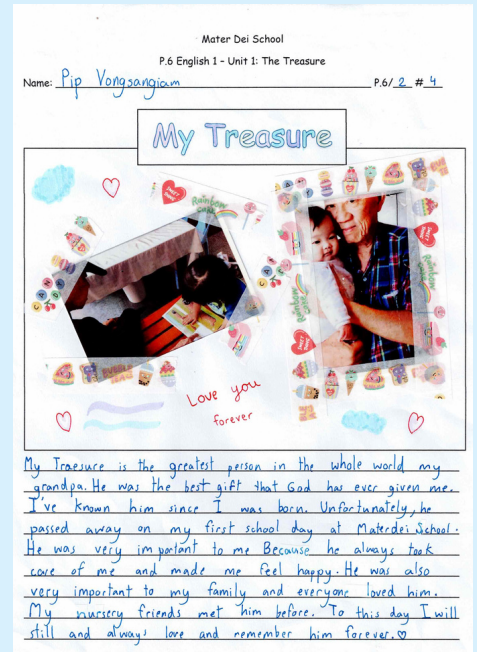 Mater Dei School
P.6 English 1 – Unit 1: The Treasure
Name: Pip Vongsangiam P.6/ 2 # 4
My Treasure
SWEET TOOTH
Rainbow
Rainbow
Love you
forever
My Traesure is the greatest person in the whole world my
grandpa. He was the best gift that God has ever given me.
I've known him since I was born. Unfortunately, he
passed away on my first school day at Materdei School.
He was very important to me Because he always took
care of me and made me feel happy. He was also
very important to my family and everyone loved him.
My nursery friends met him before. To this day I will
still and always love and remember him forever.